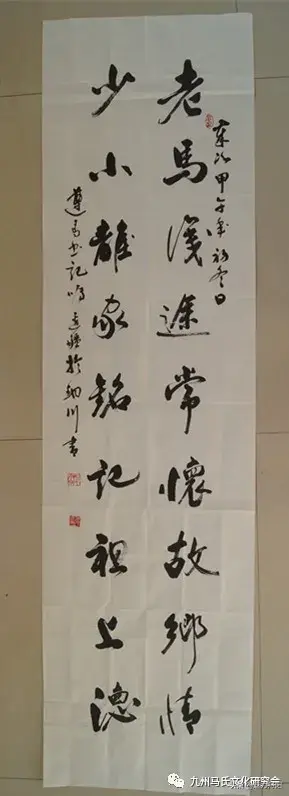 歲次甲午年初冬日
老馬識途常懷故鄉情
少小離家銘記祖上德
於銅川書
九州马氏文化研究会